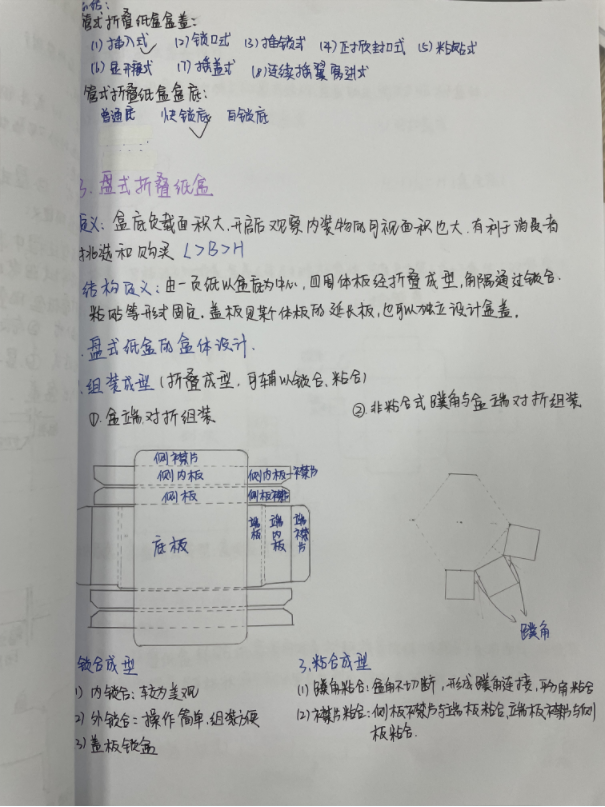 总结:
管式折叠纸盒盒盖:
(1) 插入式 (2) 锁口式 (3) 插锁式 (4) 正揿封口式 (5) 粘贴式
(6) 显开痕式 (7) 插盖式 (8) 连续摇翼窝进式
管式折叠纸盒盒底:
普通底 快锁底 自锁底
3. 盘式折叠纸盒
定义: 盒底负载面积大, 开启后观察内装物的可视面积也大. 有利于消费者
挑选和购买 L>B>H
结构定义: 由一页纸以盒底为中心, 四周体板经折叠成型, 角隅通过锁合.
粘贴等形式固定. 盖板是某个体板的延长板, 也可以独立设计盒盖.
盘式纸盒的盒体设计.
组装成型 (折叠成型. 可辅以锁合、粘合)
①. 盒端对折组装 ②. 非粘合式蹼角与盒端对折组装
侧襟片
侧内板 侧内板襟片
侧板 侧板襟片
底板 端板 端内板 端襟片
蹼角
锁合成型 3. 粘合成型
1) 内锁合: 较为美观 (1) 蹼角粘合: 盒角不切断, 形成蹼角连接, 平分角粘合
2) 外锁合: 操作简单. 组装方便 (2) 襟片粘合: 侧板襟片与端板粘合, 端板襟片与侧
3) 盖板锁盒 板粘合.